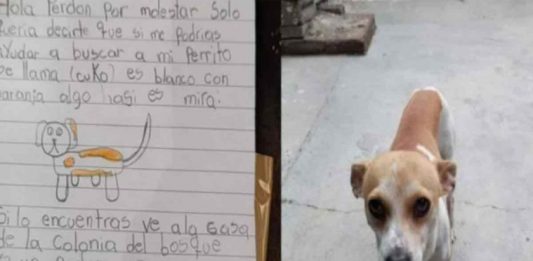 Hola Perdon por molestar Solo
queria decirte que si me Podrias
ayudar a buscar a mi Perrito
se llama (cuko) es blanco con
naranja algo asi es mira.
Si lo encuentras ve ala casa
de la Colonia del bosque